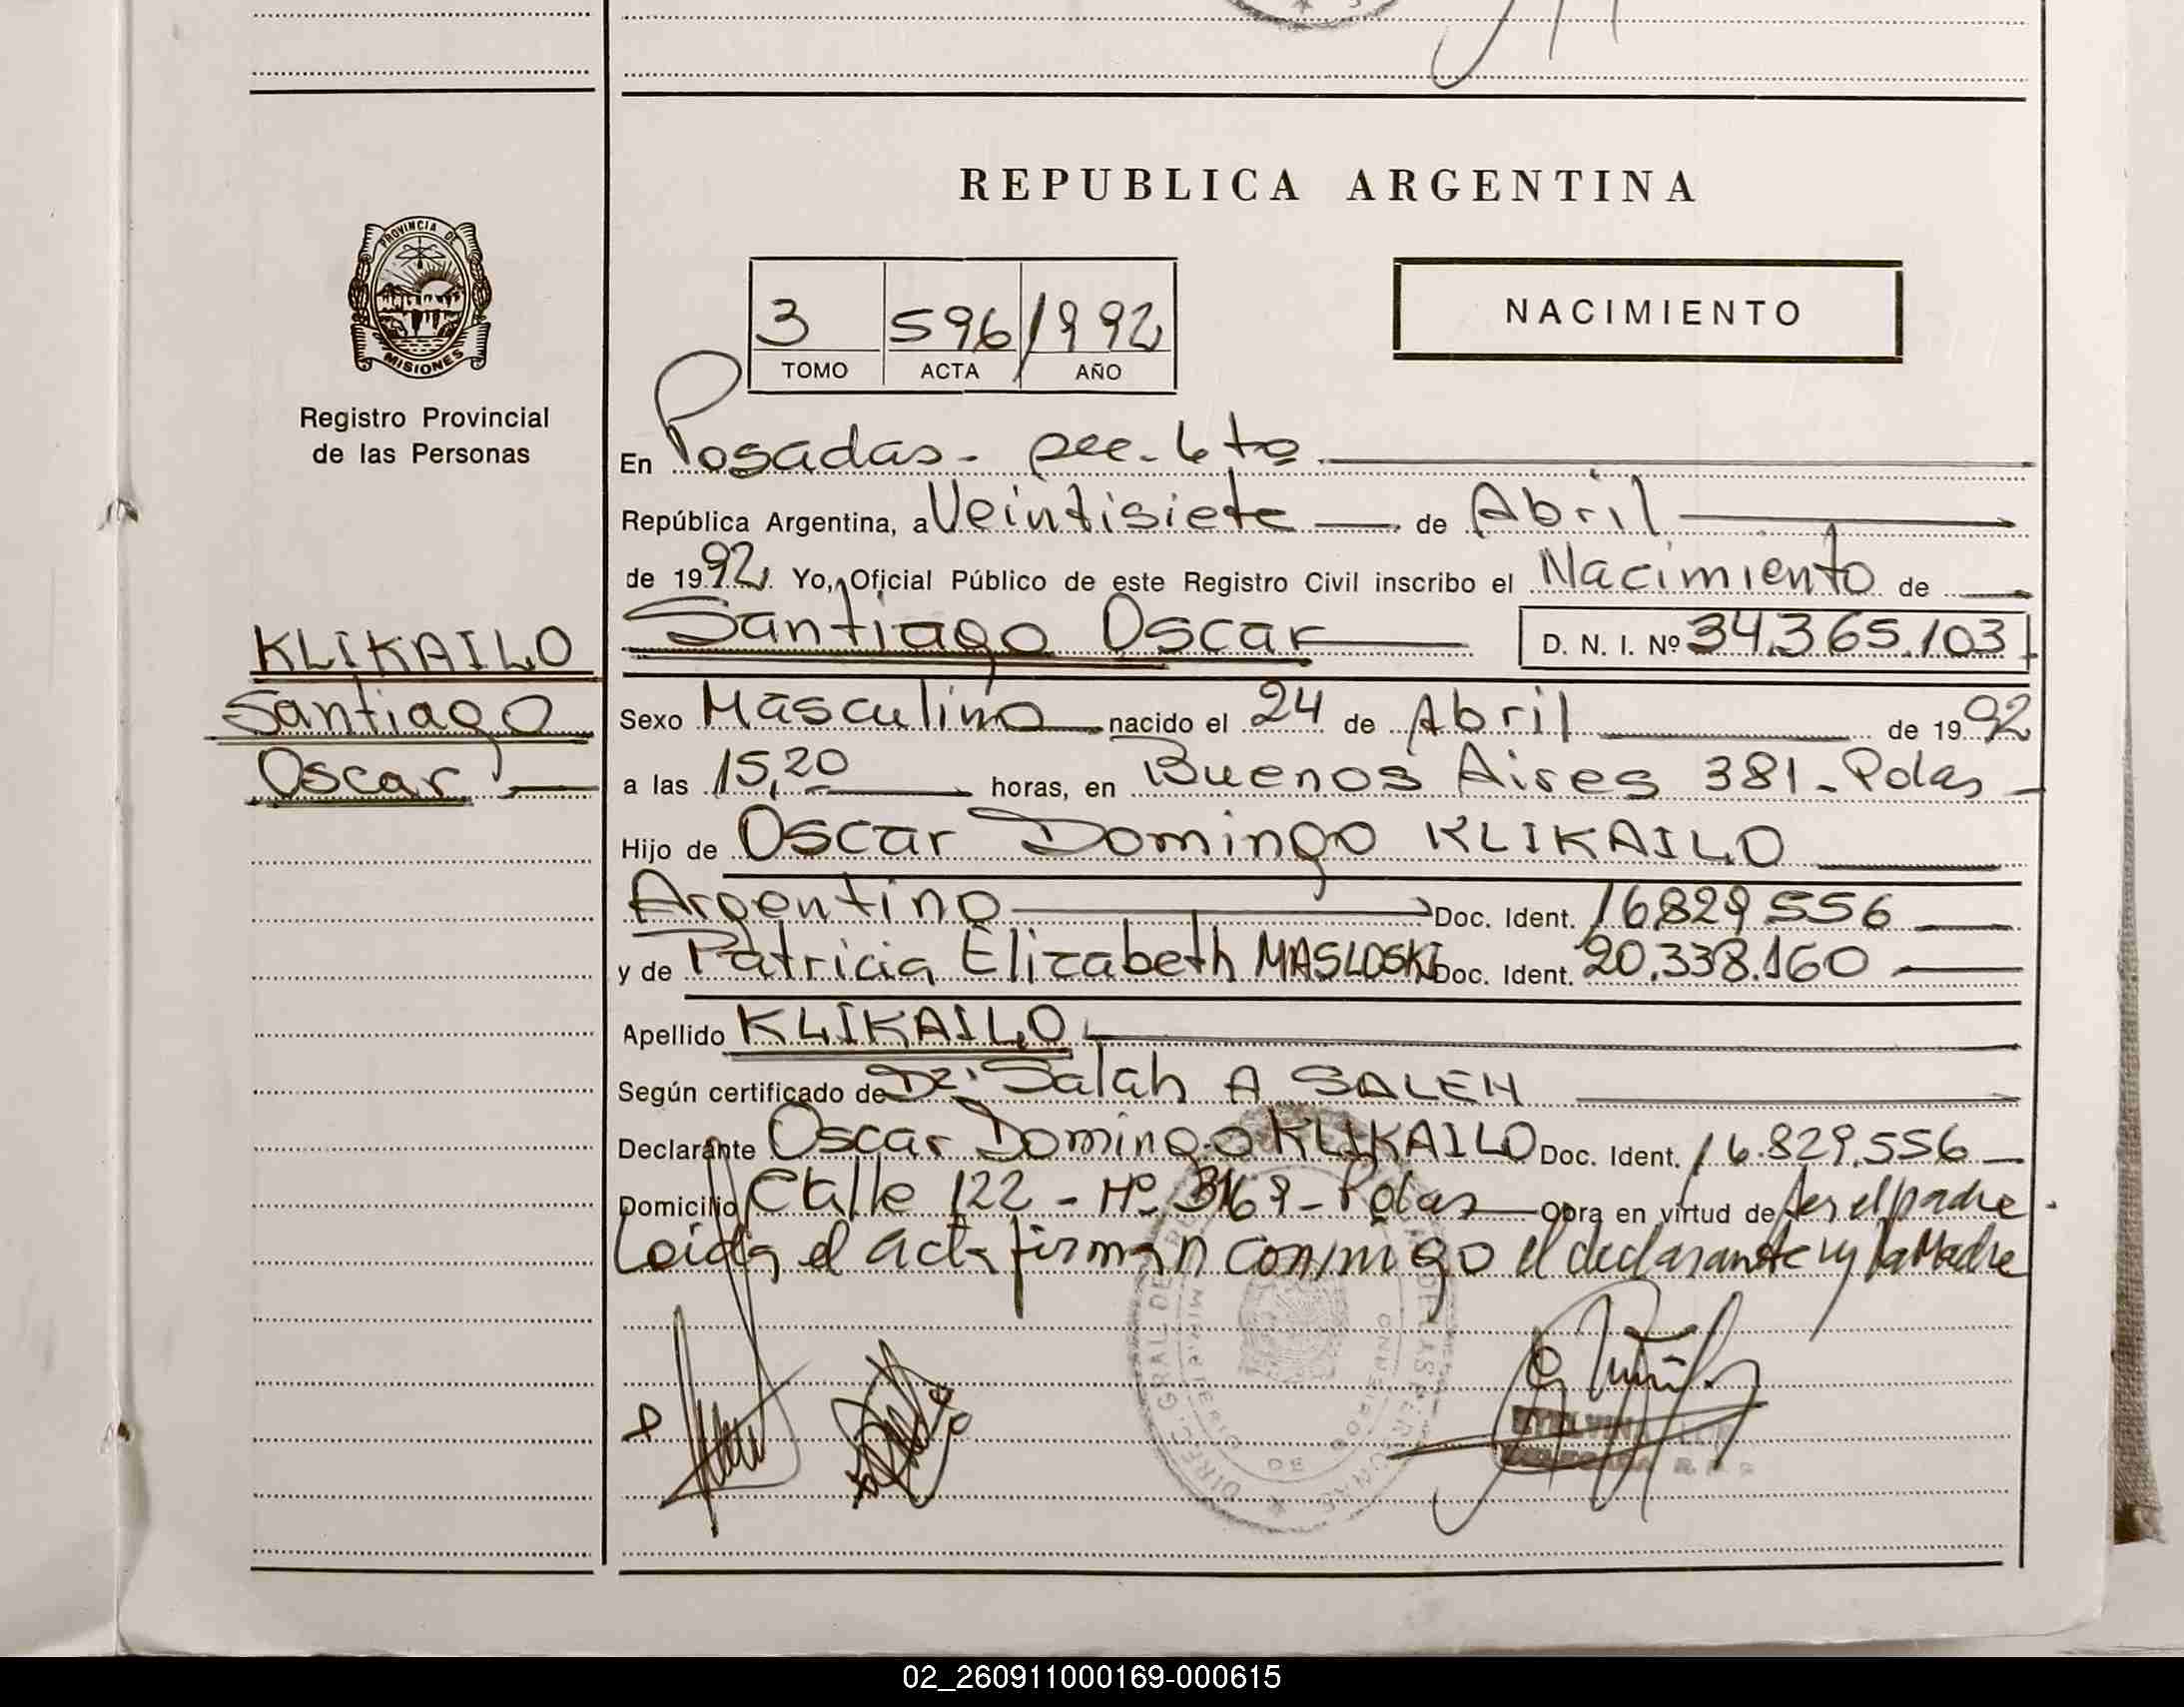 REPUBLICA ARGENTINA
PROVINCIA DE
MISIONES
Registro Provincial
de las Personas
3 596 1992
TOMO ACTA AÑO
NACIMIENTO
En Posadas - 4to
República Argentina, a Veintisiete de Abril
de 1992. Yo, Oficial Público de este Registro Civil inscribo el Nacimiento de
KLIKAILO
Santiago
Oscar
Santiago Oscar D. N. I. Nº 34.365.103
Sexo Masculino nacido el 24 de Abril de 1992
a las 15,20 horas, en Buenos Aires 381 - Pdas
Hijo de Oscar Domingo KLIKAILO
Argentino Doc. Ident. 16.829.556
y de Patricia Elizabeth MASLOSKI Doc. Ident. 20.338.160
Apellido KLIKAILO
Según certificado de Dr. Salah A SALEH
Declarante Oscar Domingo KLIKAILO Doc. Ident. 16.829.556
Domicilio Calle 122 - Nº 3169 - Pdas Obra en virtud de ser el padre.
Leida el acta firman conmigo el declarante y la Madre
02_260911000169-000615